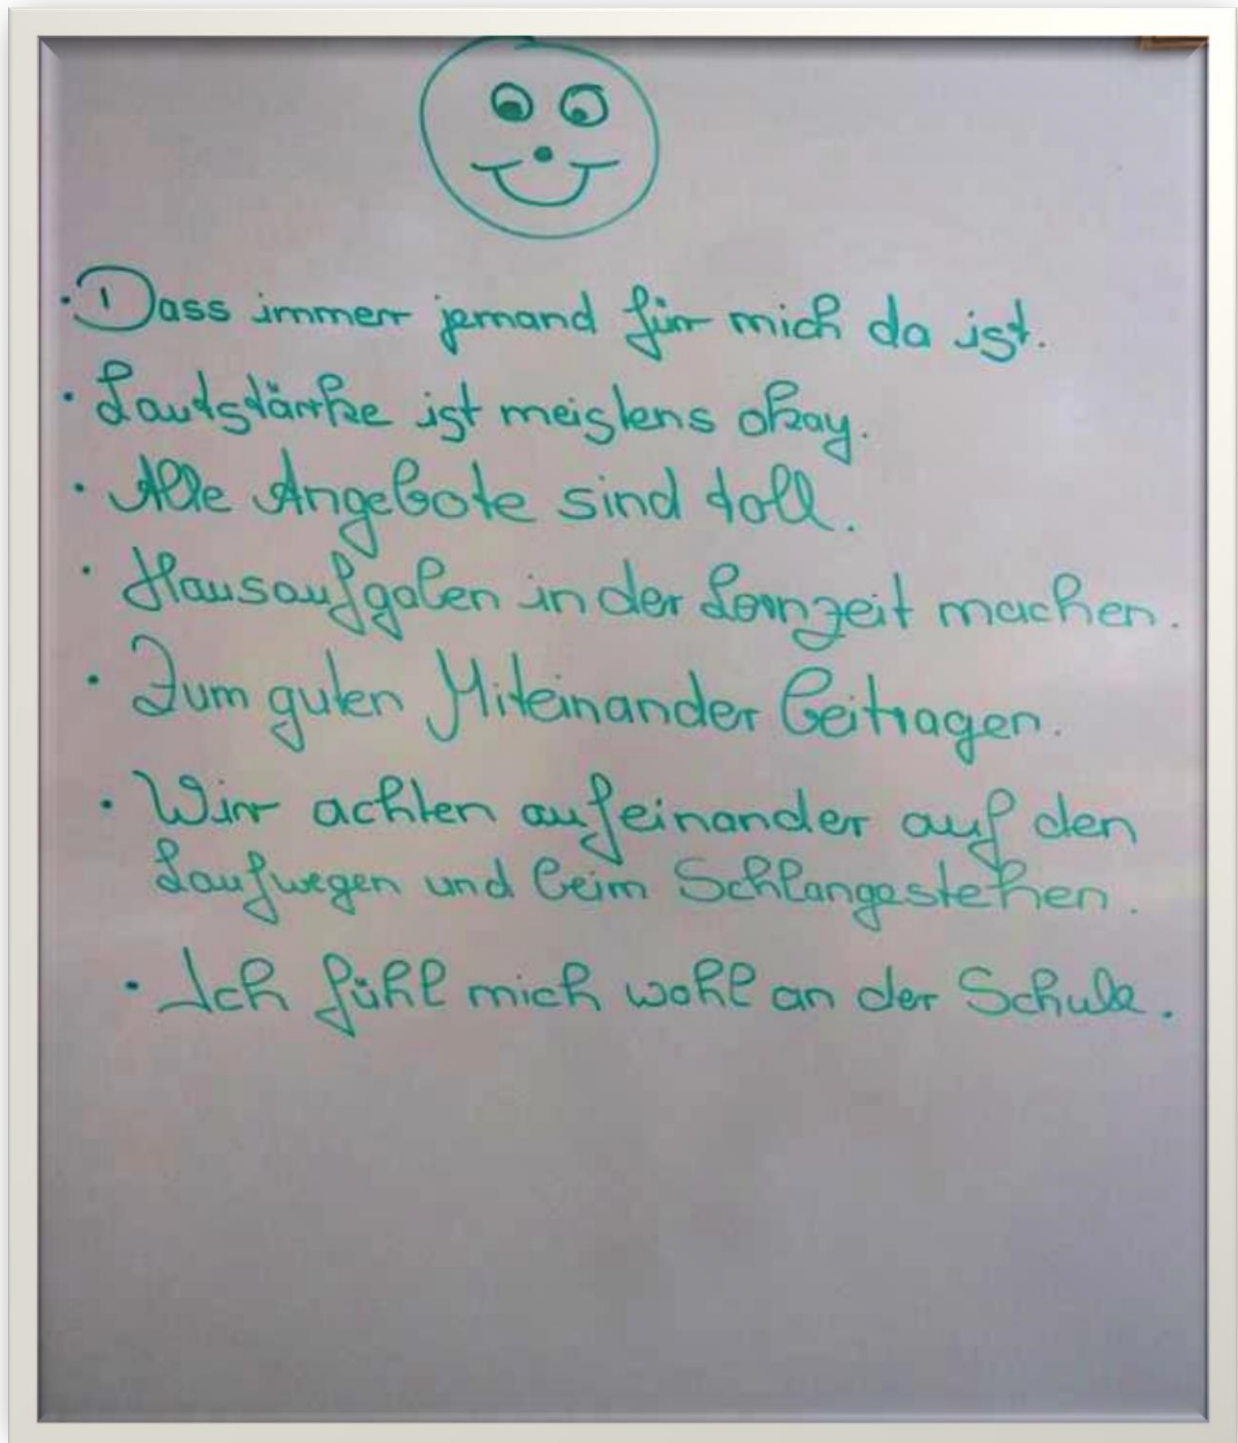 · Dass immer jemand für mich da ist.
· Lautstärke ist meistens okay.
· Alle Angebote sind toll.
· Hausaufgaben in der Lernzeit machen.
· Zum guten Miteinander beitragen.
· Wir achten aufeinander auf den
Laufwegen und beim Schlangestehen.
· Ich fühl mich wohl an der Schule.